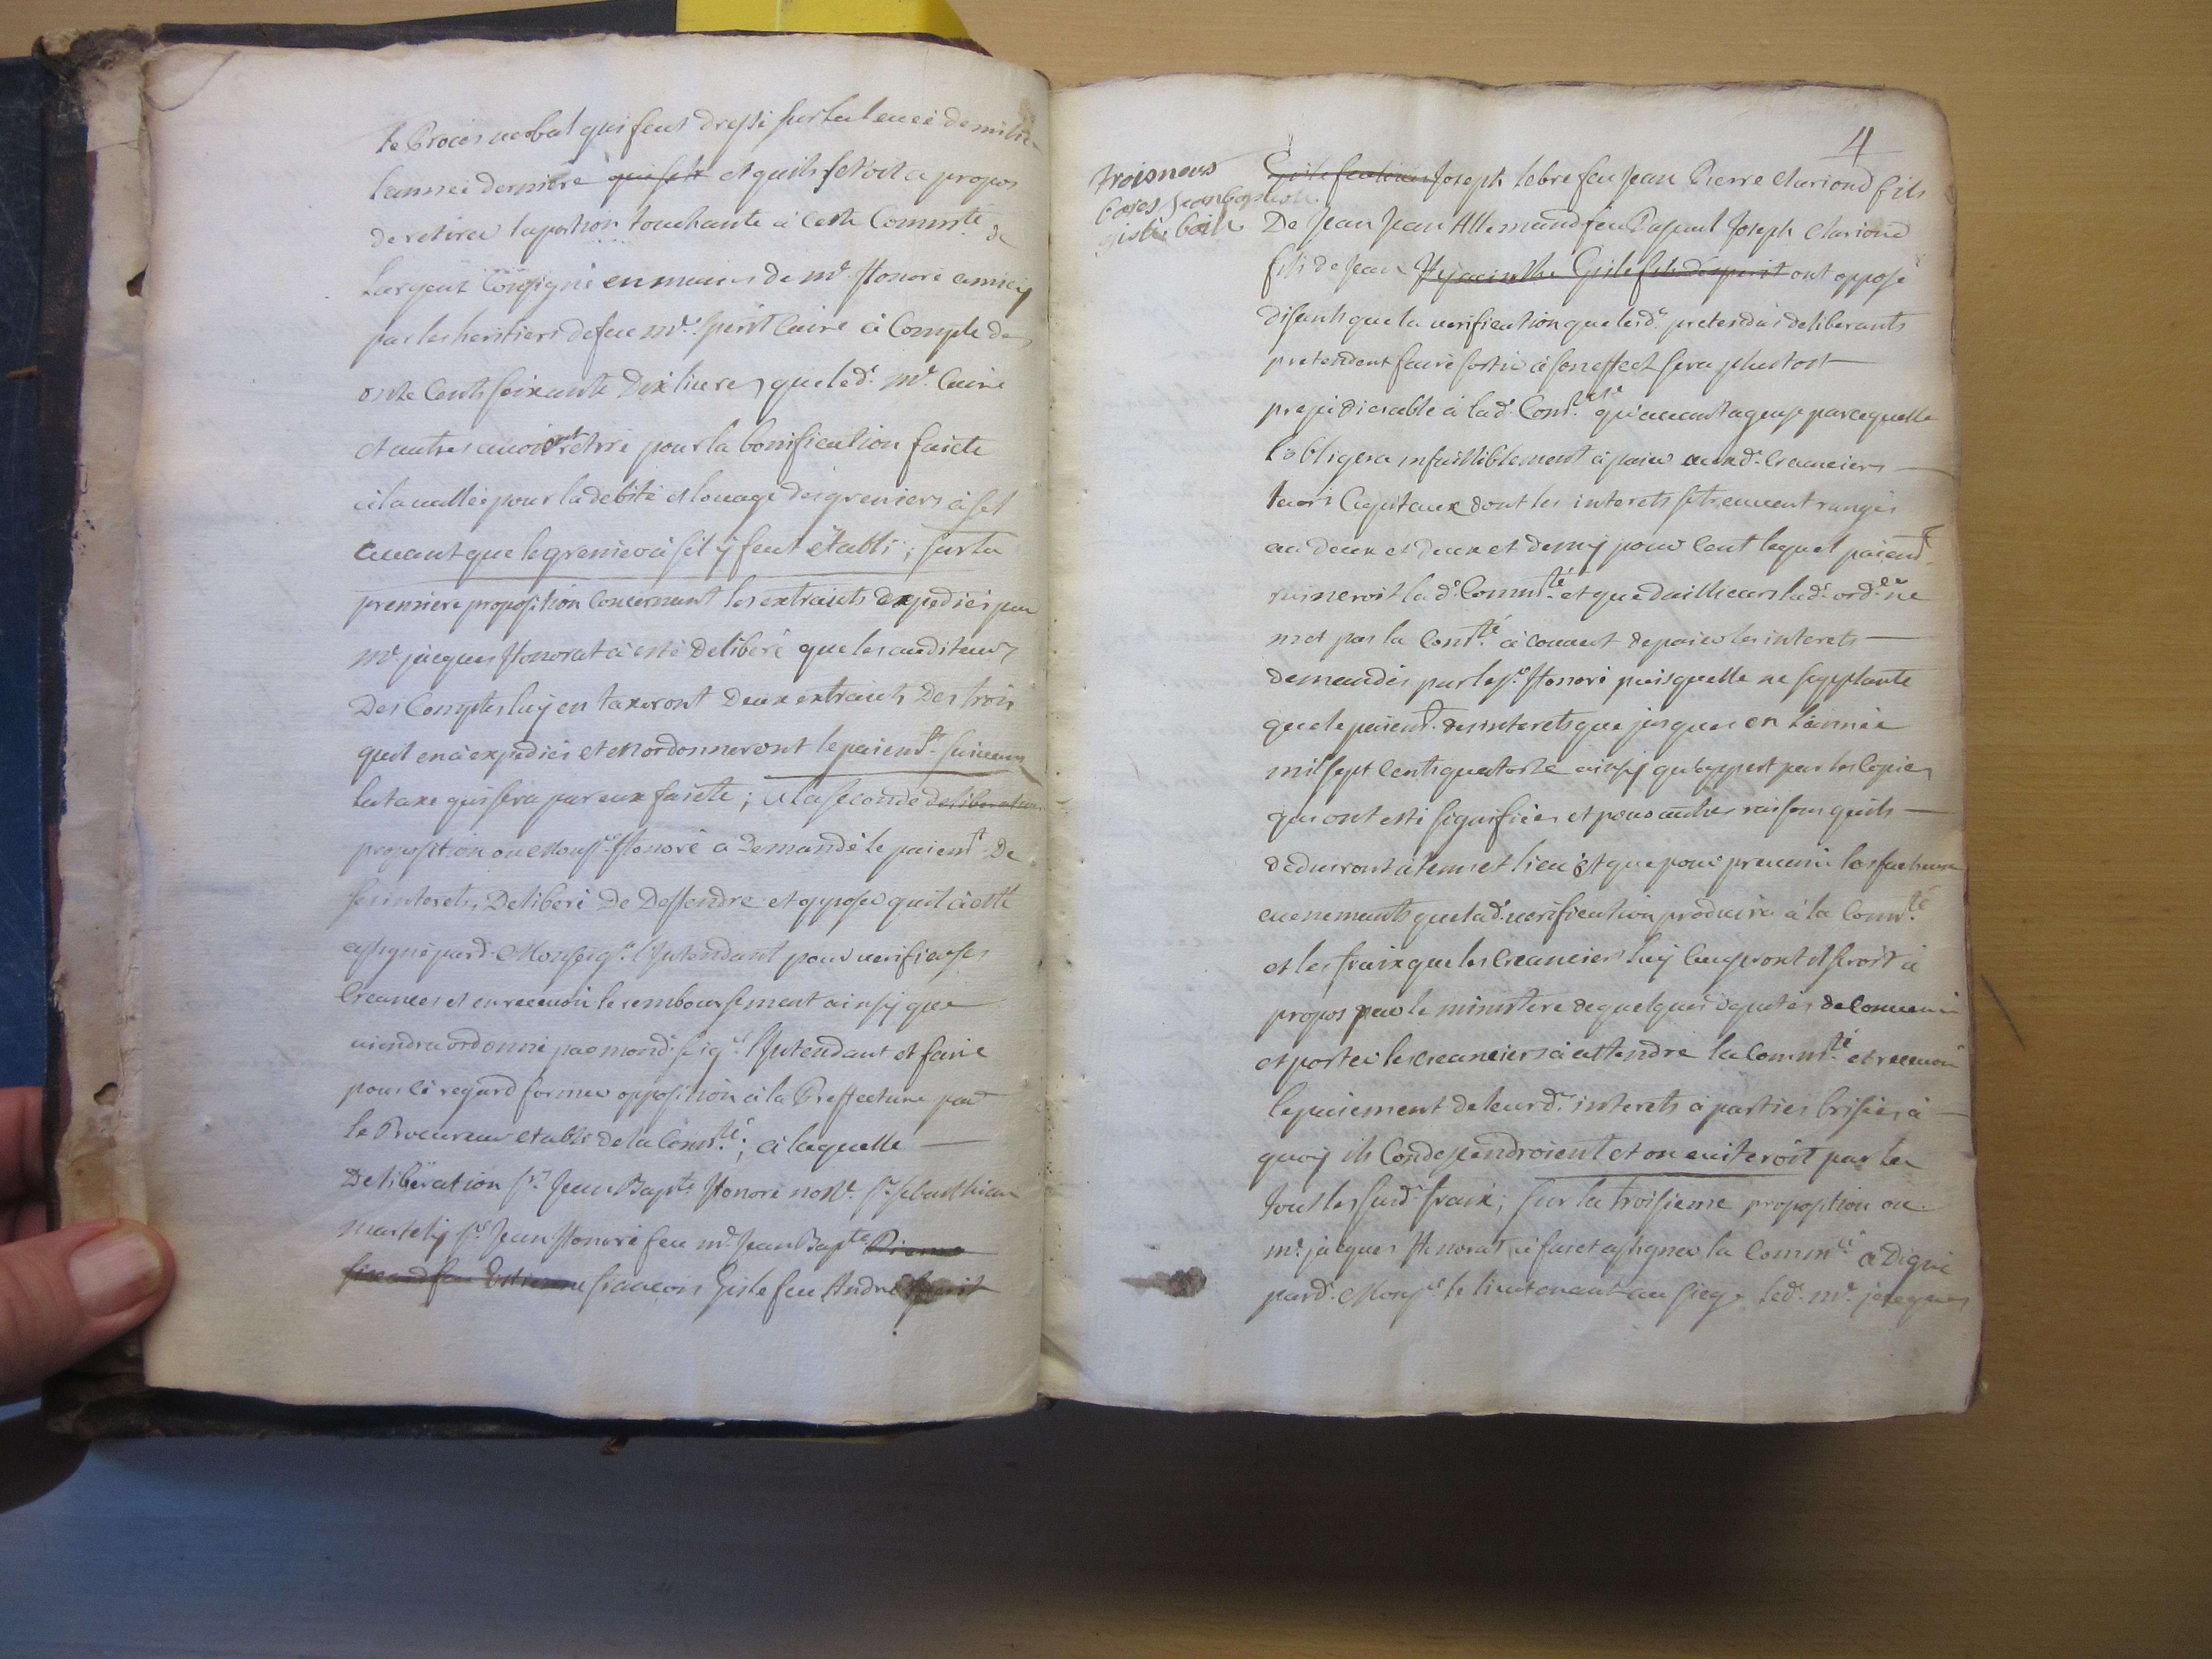 le Proces verbal qui feut dressé sur la levée de milice
lannéé derniere qui fut et quils seroit a propos
de retirer la portion touchante à ceste Commté de
Largent Consigné en mains de mr Honoré
par les heritiers de feu mr Sperit Caire à Compte des
onze Cents soixante Dix livres que led. mr Caire
et autres avoit retiré pour la bonification faicte
à la vallée pour la debite et louage des greniers à sel
avant que le grenier à sel y feut établi ; sur la
premiere proposition Concernant les extraits expediés par
mr jacques Honorat à esté Deliberé que les auditeurs
Des Comptes luy en taxeront Deux extraits Des trois
quil en à expediés et en ordonneront le paiemt suivant
la taxe qui sera par eux faicte ; a la seconde deliberation
proposition ou Monsr Honoré a Demandé le paiemt De
ses interets, Deliberé De Deffendre et opposer quil à esté
assigné pard. Monseigr l'Intendant pour verifier ses
Creances et en recevoir le remboursement ainsy que
viendra ordonné par mond. seigr l'Intendant et faire
pour cé regard former opposition à la Preffecture par
le Procureur etabli de la Comté ; à laquelle
Deliberation sr Jean Bapte Honoré nore sr sebasthian
martely sr Jean Honoré feu mr Jean Bapte Pierre
feu Estienne francois Gisle feu André Sperit
4
trois mots
barés Jean baptiste
gisle
Gisle feu Joseph lebre feu Jean Pierre Clariond fils
De Jean Jean Allemand feu Joseph Clariond
fils de Jean Hyacinthe Gisle fils desperit ont opposé
disants que la verification que lesd. pretendus deliberants
pretendent faire sortir à son effect sera plustost
prejudiciable à lad. Comté qu'avantageuse parcequelle
lobligera infailliblement à paier auxd. Creanciers
leurs Capitaux dont les interets se treuvent rangés
au deux et deux et demy pour Cent lequel paiemt
ruineroit lad. Commté et que dailleurs lad. orde ne
met pas la Comté à couvert de paier les interets
demandés par le sr Honoré puisquelle ne
que le paiemt des interets que jusques en lannée
mil sept Cents quatorze ainsy quil appert par les Copies
qui ont esté signifiées et pour autres raisons quils
deduiront à tems et lieu Et que pour prevenir les facheux
evenements que lad. verification produira à la Commté
et les fraix que les Creanciers luy Causeront il seroit à
propos par le ministere de quelques deputés de Convenir
et porter les Creanciers à attendre la Commté et recevoir
le paiement de leurd. interets à parties brisées à
quoy ils Condependroient et on eviteroit par la
tout les susd. fraix ; sur la troisieme proposition ou
mr jacques Honorat à faict assigner la Commté à Digne
pard. Monsr le lieutenant au siege led. mr jacques